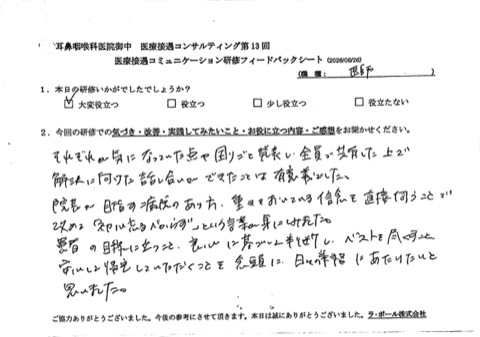 耳鼻咽喉科医院御中　医療接遇コンサルティング第13回
医療接遇コミュニケーション研修フィードバックシート (2026/06/26)
(職種： 医師 )
1．本日の研修いかがでしたでしょうか？
☑ 大変役立つ　□ 役立つ　□ 少し役立つ　□ 役立たない
2．今回の研修での気づき・改善・実践してみたいこと・お役に立つ内容・ご感想をお聞かせください。
それぞれが気になっていた点や困りごと発表し全員が共有した上で
解決に向けた話し合いができたことは有意義でした。
院長が目指す病院のあり方、重きをおいている信念を直接伺うことで
改めて という言葉が身にしみました。
患者の目線に立つこと、良心に基づいた判断し、ベストを尽くすこと
安心して帰宅していただくことを念頭に、日々の準備にあたりたいと
思いました。
ご協力ありがとうございました。今後の参考にさせて頂きます。本日は誠にありがとうございました。ラ・ポール株式会社